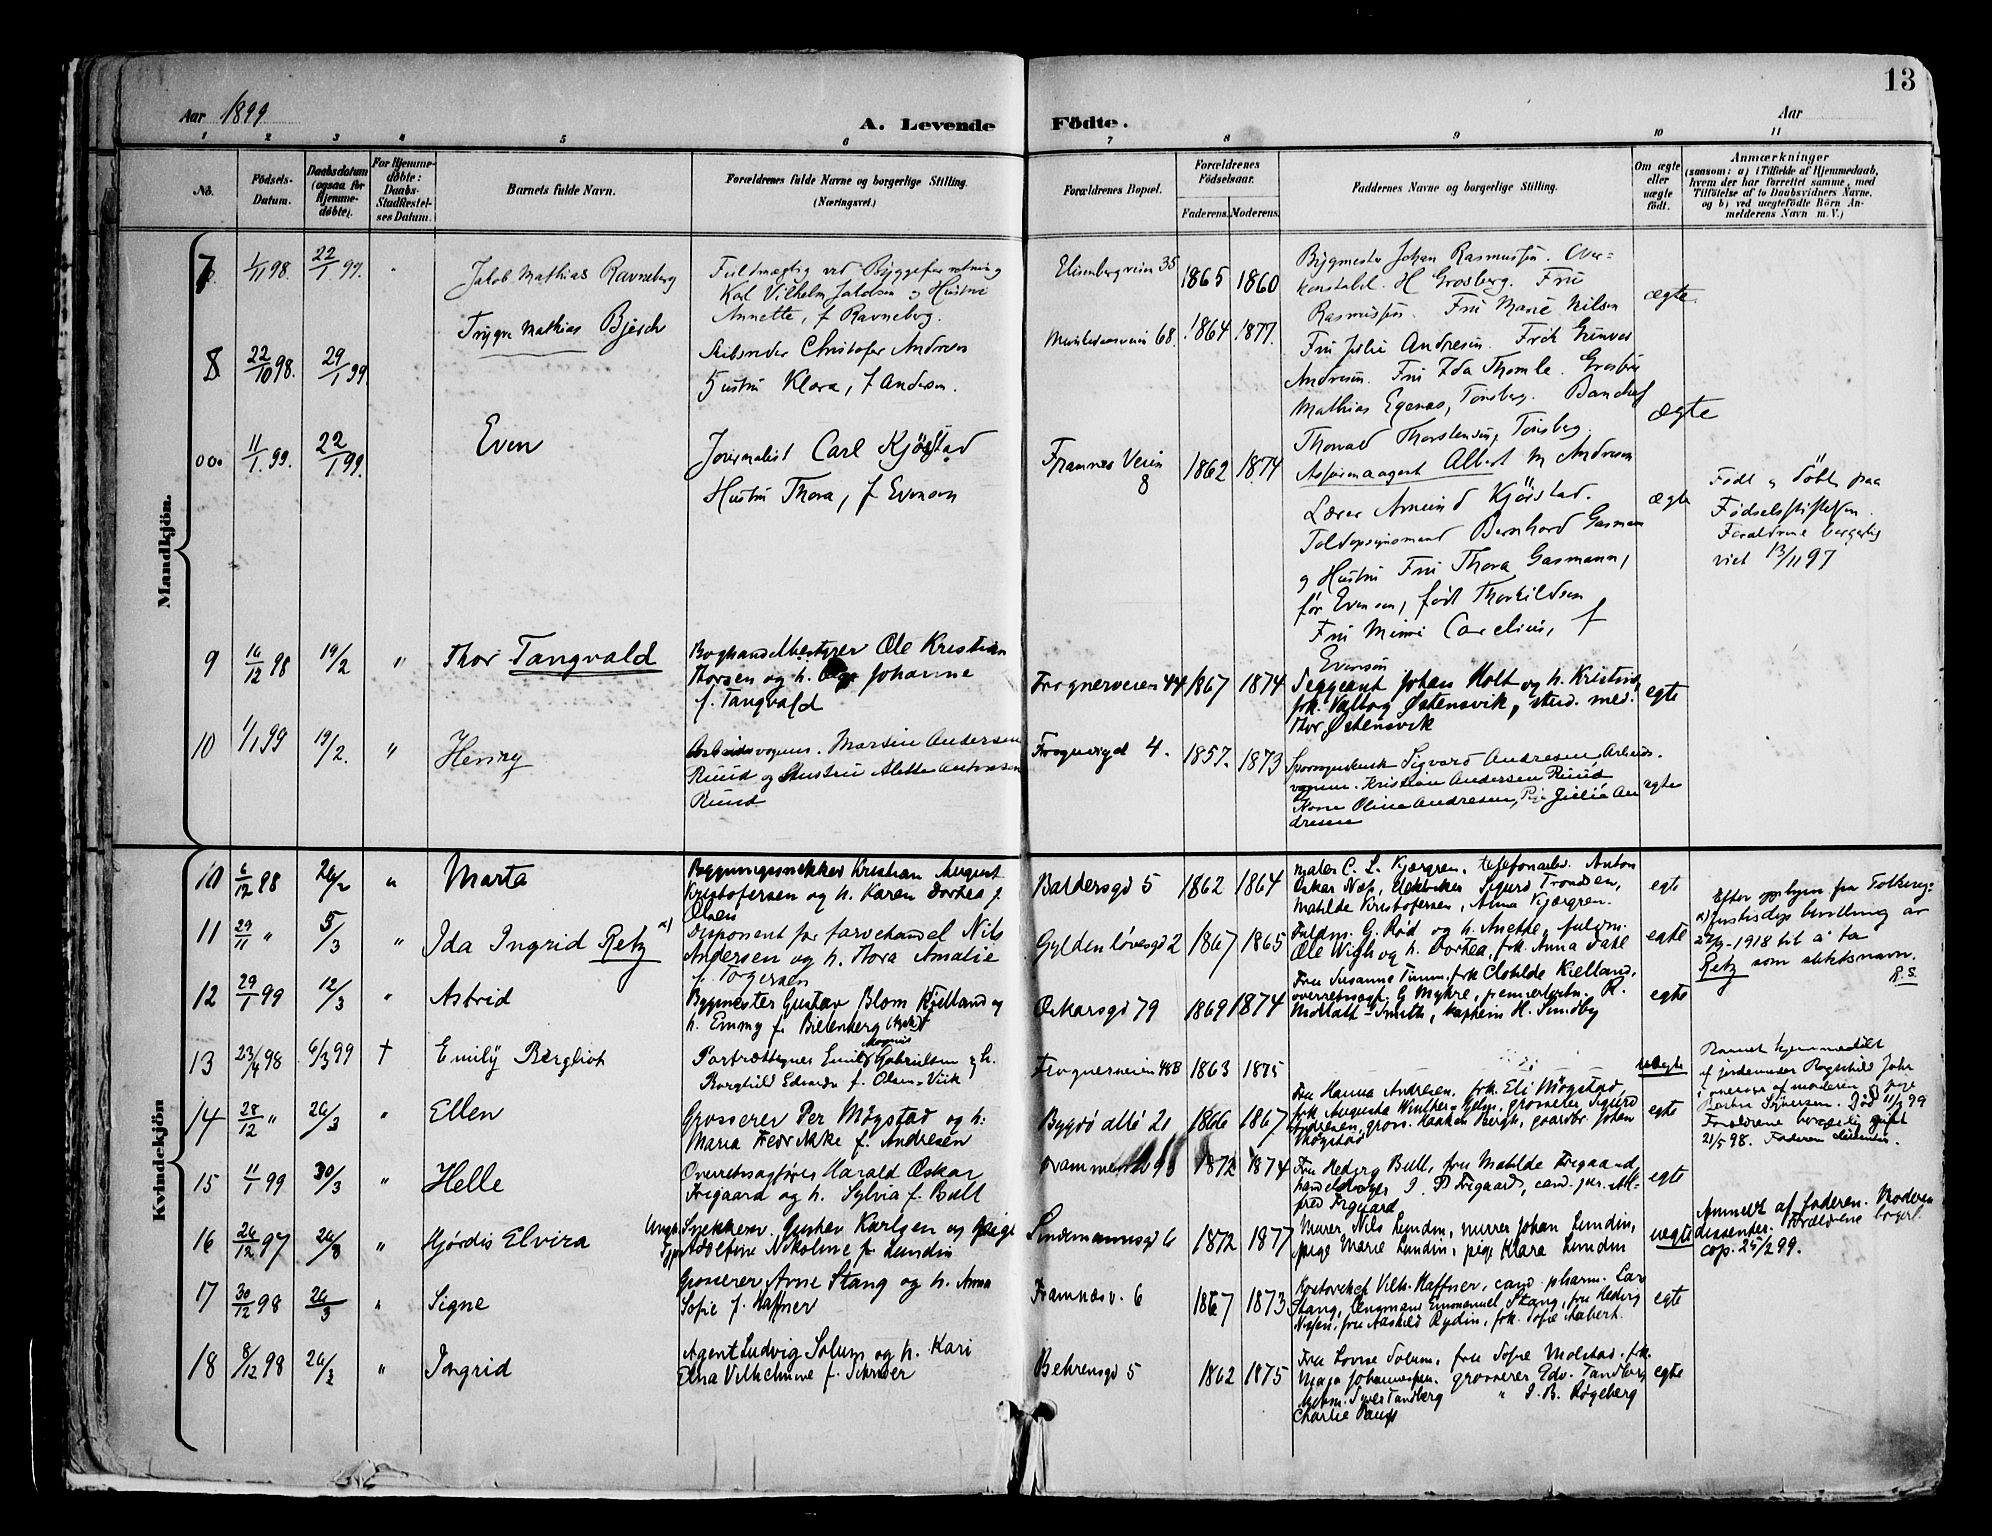 13
Aar 1899
A. Levende
Födte.
Aar
1 2 3 4 5 6 7 8 9 10 11
No.
Födsels-
Datum.
Daabsdatum
(ogsaa for
Hjemme-
døbte).
For Hjemme-
døbte:
Daabs-
Stadfæstel-
ses Datum.
Barnets fulde Navn.
Forældrenes fulde Navne og borgerlige Stilling.
(Næringsvei.)
Forældrenes Bopæl.
Forældrenes
Fødselsaar.
Faderens.
Moderens.
Faddernes Navne og borgerlige Stilling.
Om ægte
eller
uægte
født.
Anmærkninger
(saasom: a) i Tilfælde af Hjemmedaab,
hvem der har forrettet samme, med
Tilføielse af to Daabsvidners Navne,
og b) ved uægtefødte Börn An-
melderens Navn m. V.)
Mandkjön.
7
1/11 98.
22/1 99.
Jakob Mathias Ravneberg
Fuldmægtig ved
Karl Vilhelm og Hustru
Annette, f Ravneberg.
Elisenbergveien 35
1865
1860
Bygmester Johan Rasmussen. Over-
konstabel H Grosberg. Fru
Rasmussen. Fru Marie Nilsen
ægte
8
22/10 98.
29/1 99.
Trygve Mathias Bjesch
Skibsreder Christofer Andresen
Hustru Klara, f Andersen.
68.
1864
1877.
Fru Julie Andresen. Frøk
Andresen. Fru Ida Thomle.
Mathias Egenæs, Tønsberg.
Thorvald Thorstensen, Tønsberg.
Albert M Andresen
ægte
000
11/1. 99.
22/1 99.
Even
Journalist Carl Kjørstad
Hustru Thora, f Evensen
Framnes Veien
8
1862
1874
Lærer Amund Kjørstad.
Toldopsynsmand Bernhard Gasmann
og Hustru Fru Thora Gasmann,
før Evensen, født Thorkildsen
Fru Mimi Carelius, f
Evensen
ægte
Født og døbt paa
Fødselsstiftelsen.
Forældrene borgerlig
viet 13/11 97
9
16/12 98
19/2
"
Thor Tangvald
Boghandelbestyrer Ole Kristian
Thorsen og h. Johanne
f. Tangvald
Frognerveien 44
1867
1874
Sergeant Johan Holt og h. Kristine,
frk. Valborg Østensvik, stud. med.
Thor Østensvik
egte
10
1/1 99
19/2.
"
Henry
Arbeidsvognm. Martin Andersen
Ruud og Hustru Alette Antonsen
Ruud
Frognergd 4.
1857.
1873
Sporvognskusk Sigvard Andresen Arbeids-
vognm. Kristian Andersen Ruud
Kone Oline Andresen, Pige Julie An
dresen
egte
Kvindekjön
10
6/12 98
26/2
"
Marta
Bygningssnekker Kristian August
Kristofersen og h. Karen Dortea f.
Olsen
Baldersgd 5
1862
1864
maler C. L. Kjærgren, telefonarbd. Anton
Oskar Næs, Sigurd Trondsen,
Matilde Kristofersen, Anna Kjærgren.
egte
11
29/11 "
5/3
"
Ida Ingrid Retz a)
Disponent for farvehandel Nils
Andersen og h. Thora Amalie
f. Torgersen
Gyldenløvesgd 2
1867
1865
Fuldm. G. Rød og h. Anette, fuldm.
Ole Wigh og h. Dortea, frk. Anna Dahl
egte
a) Efter ophjem fra Tolkning-
Justisdep bevilling av
22/9-1918 til å ta
Retz som slektsnavn.
R.S.
12
29/1 99
12/3
"
Astrid
Bygmester Gustav Blom Kjelland og
h. Emmy f. Bielenberg
Oskarsgd 79
1869
1874
Fru Susanne Timm, frk Clotilde Kielland,
overretssagf. G Myhre, premierløitn. R.
Smith, kaptein H. Sundby
egte
13
23/4 98
6/3 99
†
Emily Bergliot
Portrættegner Emil Magnus Gabrielsen og h.
Borghild f. Olsen-Vik
Frognerveien 48B
1863
1875
uægte
Barnet hjemmedøbt
af jordemoder Ragnhild Johr
i overvær af moderen og pige
Syversen. Død 11/3 99
Forældrene borgerlig gift
21/5 98. Faderen dissenter.
14
28/12 "
26/3
"
Ellen
Grosserer Per Møgstad og h.
Maria Fredrikke f. Andresen
Bygdø allé 21
1866
1867
Fru Hanna Andresen, frk. Eli Møgstad,
frk Augusta Winther-Hjelm, grosserer Sigurd
Andresen, gross. Haakon Bergh, gaardbr Johan
Møgstad
egte
15
11/1 99
30/3
"
Helle
Overretssagfører Harald Oskar
Frigaard og h. Sylvia f. Bull
1872
1874
Fru Hedevig Bull, fru Matilde Frigaard,
I. P Frigaard, cand. jur. Al-
fred Frigaard
egte
16
26/12 97
26/3
"
Hjørdis Elvira
Ungk. Snekkersv. Gustav Karlsen og pige
Adolfine Nikoline f. Lundin
Lindemannsgd 6
1872
1877
Murer Nils Lundin, murer Johan Lundin,
pige Marie Lundin, pige Klara Lundin
uegte
Anmeldt af faderen. Moderen
dissenter. Forældrene borgerl.
cop. 25/2 99.
17
30/12 98
26/3
"
Signe
Grosserer Arne Stang og h. Anna
Sofie f. Haffner
Framnæsv. 6
1867
1873
Vilh. Haffner, cand. pharm. Car
Stang, Emmanuel Stang, fru Hedvig
Nissen, fru Aashild Rydin, frk. Sofie Aabert.
egte
18
8/12 98
26/3
"
Ingrid
Agent Ludvig Solum og h. Kari
Elna Vilhelmine f. Schrøder
Behrensgd 5
1862
1875
Fru Lovise Solum, fru Sofie Molstad, frk.
Maja Johannessen. grosserer Edv. Tandberg
Tandberg " I. B. Røgeberg
Charlie
egte